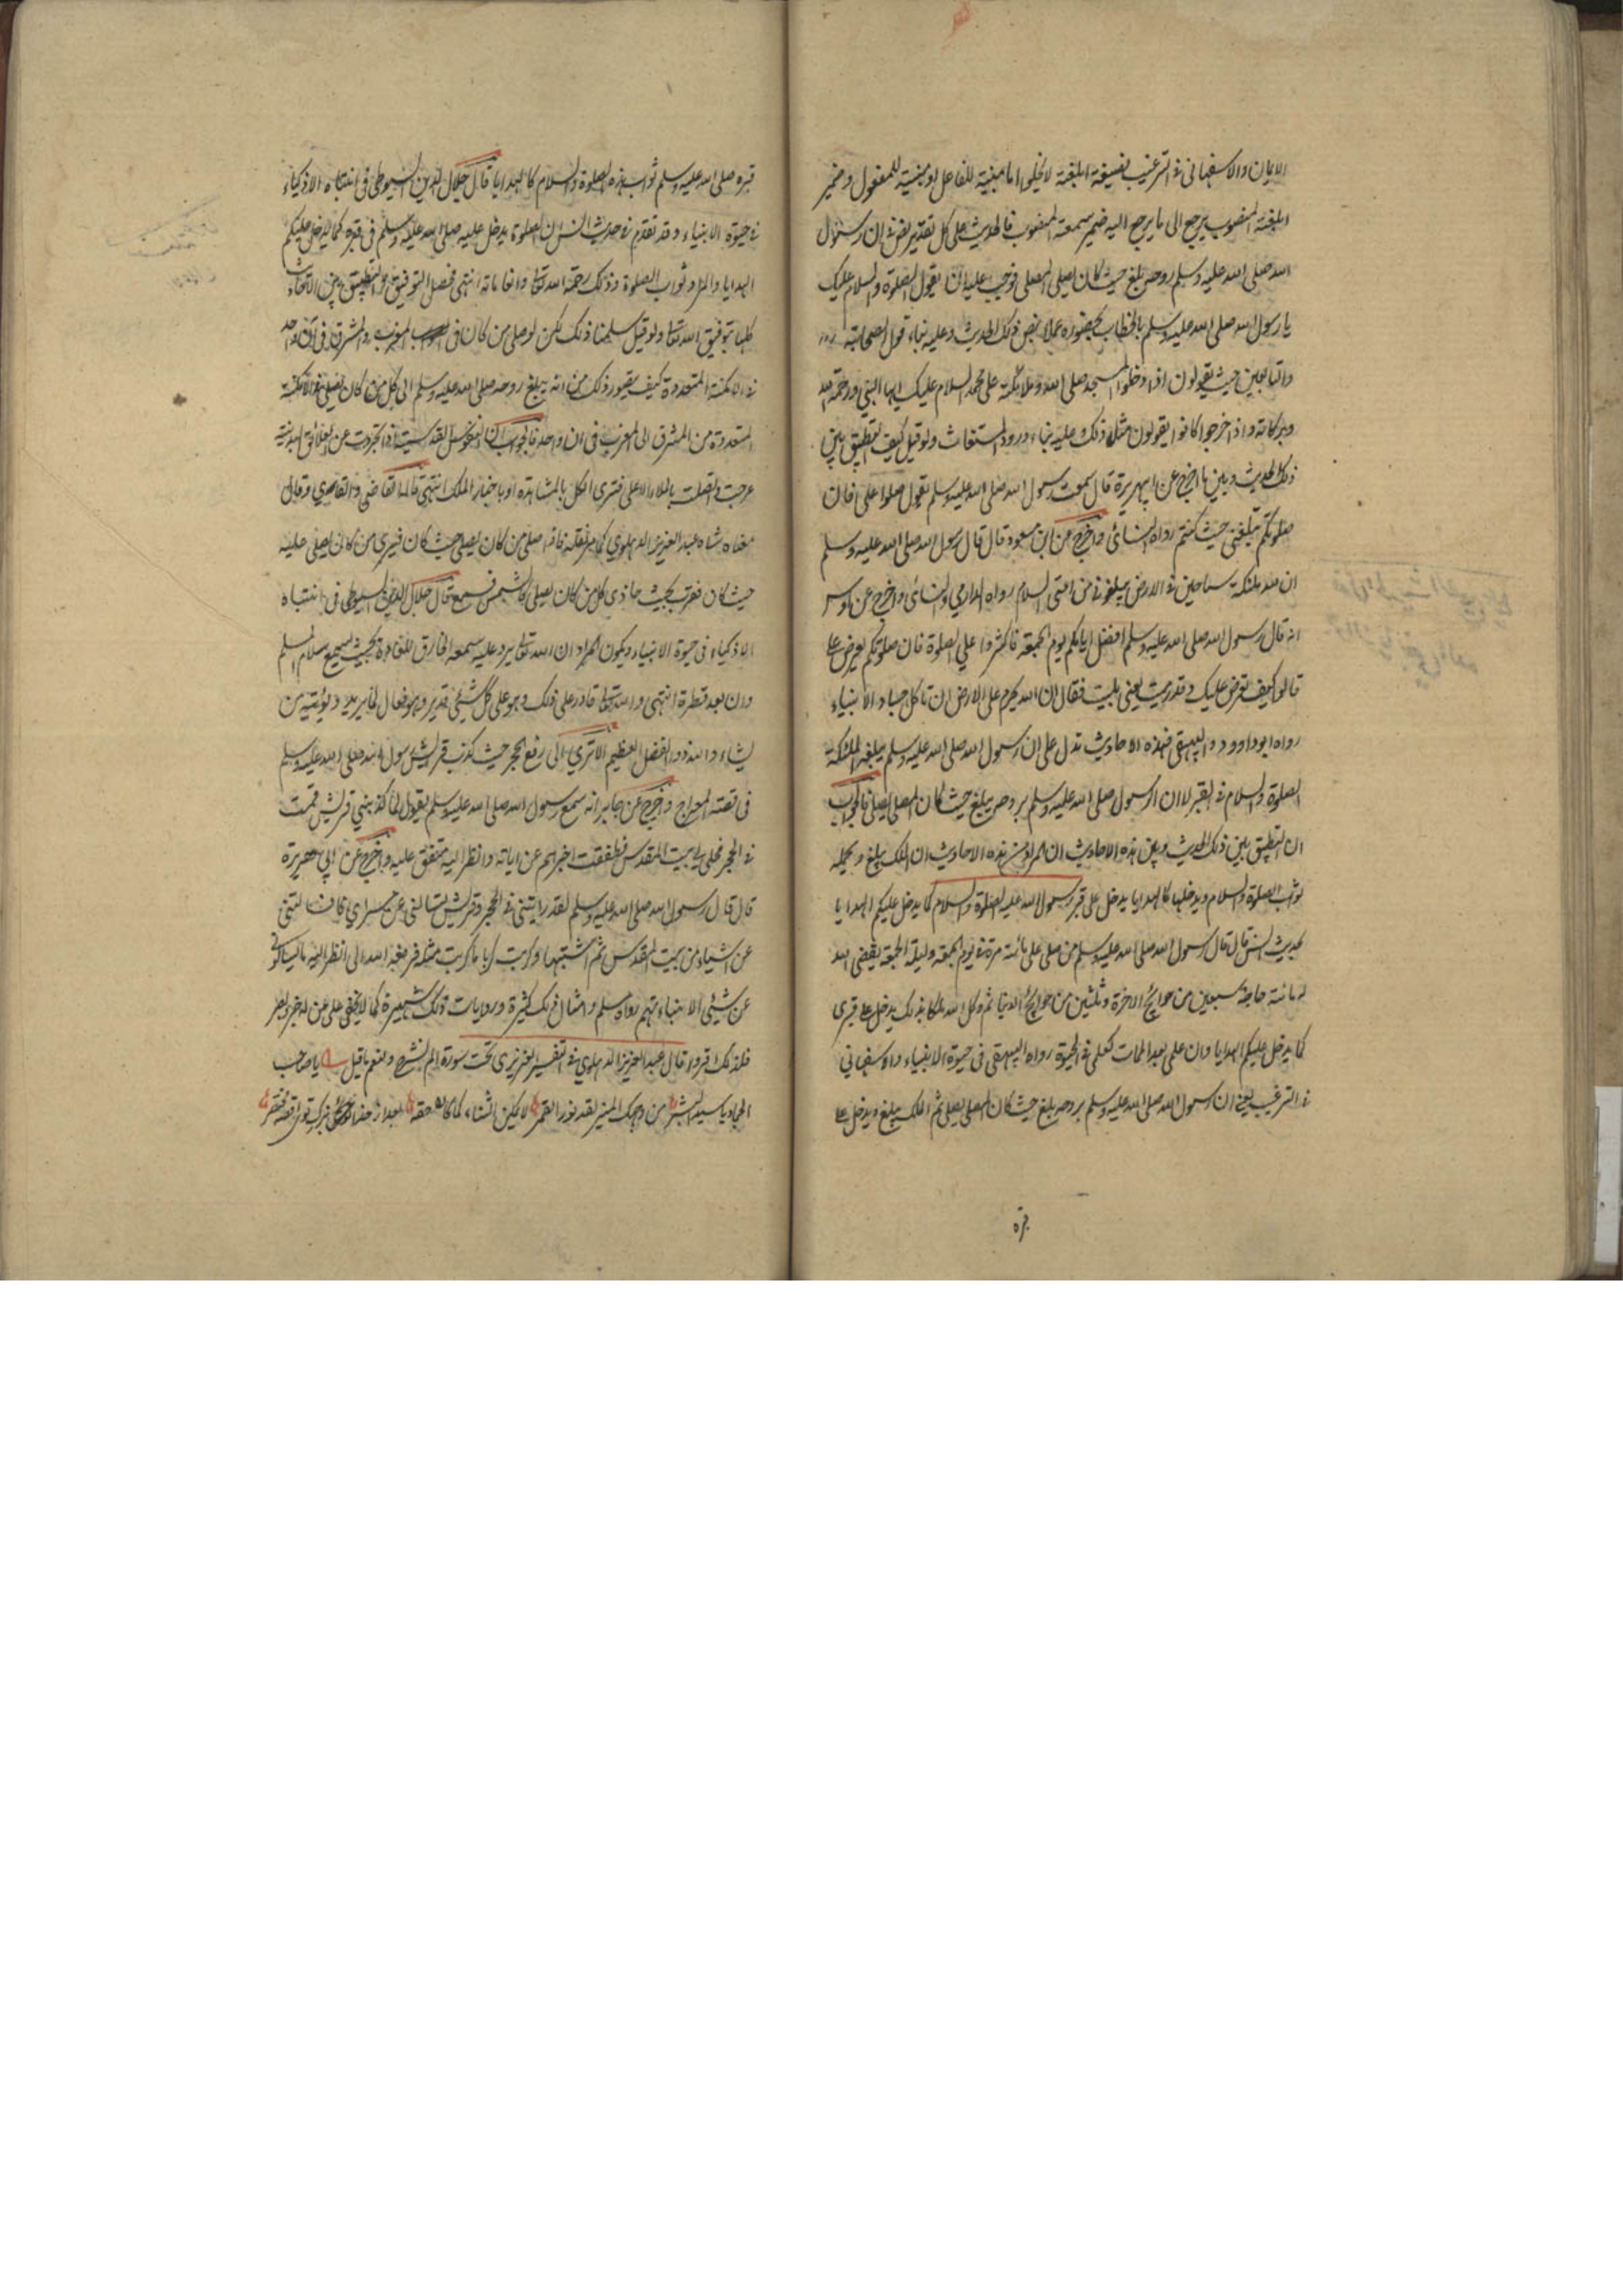 الايمان والاسفهانى فى الترغيب بصيغة ابلغته لا يخلوا اما مبنية للفاعل او مبنية للمفعول وضمير
ابلغته المنصوب يرجع الى ما يرجع اليه ضمير سمعته المنصوب فالحديث على كل تقدير نص فى ان رسول
الله صلى الله عليه وسلم روحه يبلغ حيث كان يصلى المصلى فوجب عليه ان يقول الصلوة والسلام عليك
يا رسول الله صلى الله عليه وسلم بالخطاب بحضوره عملا بنص ذلك الحديث وعليه بناء قول الصحابة
والتابعين حيث يقولون اذا دخلوا المسجد صلى الله وملائكته على محمد السلام عليك ايها النبي ورحمة الله
وبركاته واذا خرجوا كانوا يقولون مثله ذلك عليه بناء ورود المستغاث ولو قيل كيف التطبيق بين
ذلك الحديث وبين ما اخرج عن ابيهريرة قال سمعت رسول الله صلى الله عليه وسلم يقول صلوا على فان
صلوتكم تبلغنى حيث كنتم رواه النسائى واخرج عن ابن مسعود قال قال رسول الله صلى الله عليه وسلم
ان لله ملئكة سياحين فى الارض يبلغونى من امتى السلام رواه الدارمي والنسائى واخرج عن اوس
انه قال رسول الله صلى الله عليه وسلم افضل ايامكم يوم الجمعة فاكثروا علي الصلوة فان صلوتكم تعرض على
قالو كيف تعرض عليك وقد رمت يعنى بليت فقال ان الله حرم على الارض ان تاكل اجساد الانبياء
رواه ابو داوود والبيهقى فهذه الاحاديث تدل على ان رسول الله صلى الله عليه وسلم يبلغه الملئكة
الصلوة والسلام فى القبر لا ان الرسول صلى الله عليه وسلم بروحه يبلغ حيث كان المصلى يصلى فالجواب
ان التطبيق بين ذلك الحديث وبين هذه الاحاديث ان المراد من هذه الاحاديث ان الملك يبلغ ويحمله
ثواب الصلوة والسلام ويدخلها كالهدايا يدخل على قبر رسول الله عليه الصلوة والسلام كما يدخل عليكم الهدايا
لحديث انس قال قال رسول الله صلى الله عليه وسلم من صلى على مائة مرة فى يوم الجمعة وليلة الجمعة يقضى الله
له مائة حاجة سبعين من حوائج الاخرة وثلثين من حوائج الدنيا ثم وكل الله ملكا بذلك يدخل على قبرى
كما يدخل عليكم الهدايا وان علمى بعد الممات كعلمى فى الحيوة رواه البيهقى فى حيوة الانبياء والاسفهانى
فى الترغيب يعنى ان رسول الله صلى الله عليه وسلم بروحه يبلغ حيث كان المصلى يصلى ثم الملك يبلغ ويدخل على
قبره
قبره صلى الله عليه وسلم ثواب هذه الصلوة والسلام كالهدايا قال جلال الدين السيوطى فى انتباه الاذكياء
فى حيوة الانبياء وقد تقدم فى حديث انس ان الصلوة يدخل عليه صلى الله عليه وسلم فى قبره كما يدخل عليكم
الهدايا والمراد ثواب الصلوة وذلك رحمة الله تعالى وانعاماته انتهى فحصل التوفيق والتطبيق بين الاحاديث
كلها بتوفيق الله تعالى ولو قيل سلمنا ذلك لكن لو صلى من كان فى المغرب والمشرق فى آن واحد
فى الامكنة المتعددة كيف يتصور ذلك من انه يبلغ روحه صلى الله عليه وسلم الى كل من كان يصلى فى الامكنة
المتعددة من المشرق الى المغرب فى ان واحد فالجواب ان النفوس القدسية اذا تجردت عن العلائق البدنية
عرجت واتصلت بالملاء الاعلى فترى الكل بالمشاهدة او باخبار الملك انتهى قالها القاضى والقارى وقال
معناه شاه عبد العزيز الدهلوي كما مر نقله فاذا صلى من كان يصلى حيث كان فيرى من كان يصلى عليه
حيث كان فقرب بحيث حاذى كل من كان يصلى كالشمس فيسمع قال جلال الدين السيوطى فى انتباه
الاذكياء فى حيوة الانبياء ويكون المراد ان الله تعالى يرد عليه سمعه الخارق للعادة بحيث يسمع سلام المسلم
وان بعد قطره انتهى والله تعالى قادر على ذلك وهو على كل شيئ قدير وهو فعال لما يريد ويؤتيه من
يشاء والله ذو الفضل العظيم الا ترى الى رفع الحجر حيث كذب قريش رسول الله صلى الله عليه وسلم
فى قصة المعراج واخرج عن جابر انه سمع رسول الله صلى الله عليه وسلم يقول لما كذبني قريش قمت
فى الحجر فجلى لي بيت المقدس فطفقت اخبرهم عن اياته وانظر اليه متفق عليه واخرج عن ابي هريرة
قال قال رسول الله صلى الله عليه وسلم لقد رايتنى فى الحجر وقريش تسالنى عن مسراي فسالتنى
عن اشياء من بيت المقدس لم اثبتها وكربت كربا ما كربت مثله فرفعه الله لى انظر اليه ما يسالونى
عن شيئ الا انباءتهم رواه مسلم وامثال ذلك كثيرة وروايات ذلك شهيرة كما لا يخفى على من
فلذلك اقروا قال عبد العزيز الدهلوي فى تفسير العزيزى تحت سورة الم نشرح ولنعم ما قيل يا صاحب
الجمال ويا سيد البشر من وجهك المنير لقد نور القمر لا يمكن الثناء كما كان حقه بعد از خدا بزرگ توئى قصه مختصر